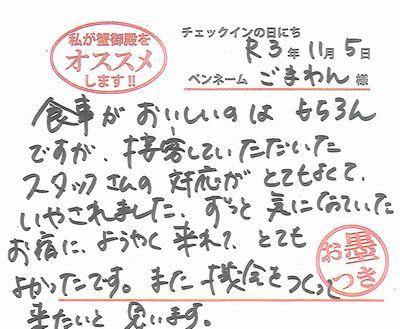 私が蟹御殿を
オススメ
します!!
チェックインの日にち
R3年11月5日
ペンネーム ごまわん 様
食事がおいしいのはもちろん
ですが、接客していただいた
スタッフさんの対応がとてもよくて、
いやされました。ずっと気になっていた
お宿に、ようやく来れて、とても
よかったです。また機会をつくって
来たいと思います。
お墨つき